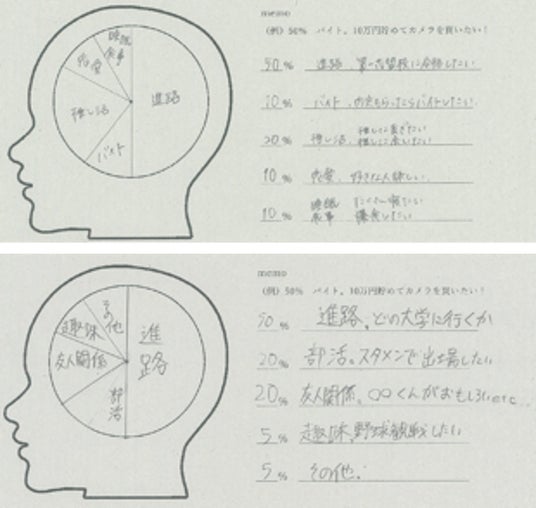 睡眠
食事
恋愛
推し活
バイト
進路
memo
(例) 50% バイト。10万円貯めてカメラを買いたい!
50% 進路、第一志望校に合格したい
10% バイト、
20% 推し活 推しに貢ぎたい
推しに会いたい
10% 恋愛、好きな人欲しい、
10% 睡眠 たくさん寝たい
食事 爆食したい
その他
趣味
友人関係
部活
進路
memo
(例) 50% バイト。10万円貯めてカメラを買いたい!
50% 進路。どの大学に行くか
20% 部活。スタメンで出場したい
20% 友人関係。○○くんがおもしろいetc...
5% 趣味。野球観戦したい
5% その他.